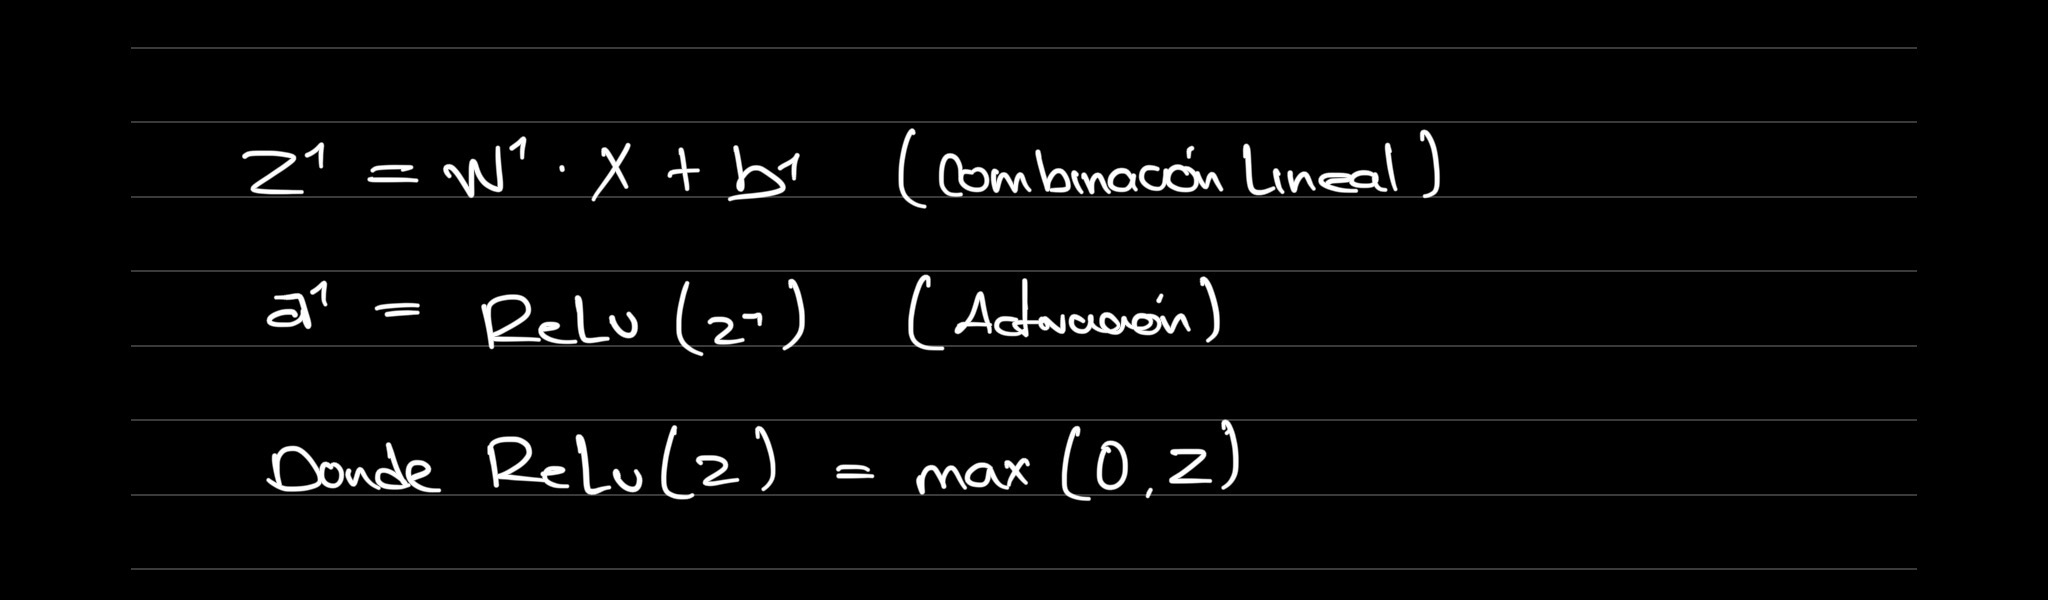 z¹ = W¹ · X + b¹ (Combinación Lineal)
a¹ = ReLu (z¹) (Activación)
Donde ReLu(z) = max (0, z)